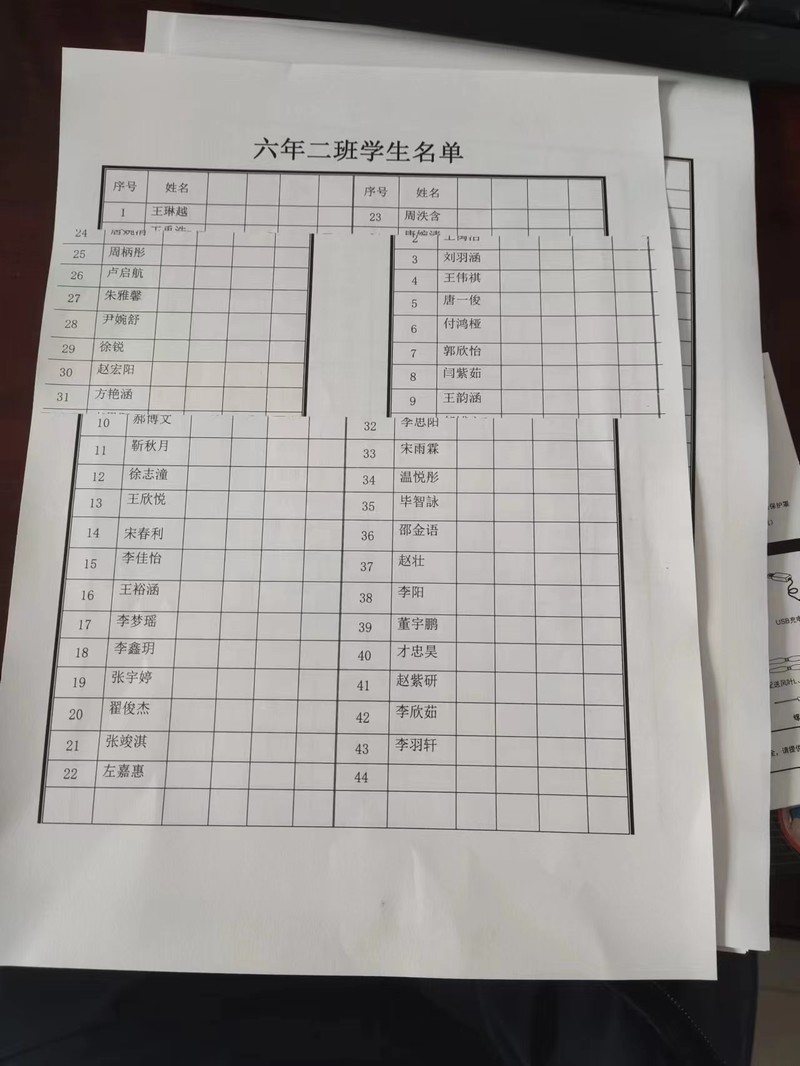 六年二班学生名单
序号 姓名 序号 姓名
1 王琳越 23 周泆含
24 2
25 周柄彤 3 刘羽涵
26 卢启航 4 王伟祺
27 朱雅馨 5 唐一俊
28 尹婉舒 6 付鸿桠
29 徐锐 7 郭欣怡
30 赵宏阳 8 闫紫茹
31 方艳涵 9 王韵涵
10 郝博文 32 李思阳
11 靳秋月 33 宋雨霖
12 徐志潼 34 温悦彤
13 王欣悦 35 毕智詠
14 宋春利 36 邵金语
15 李佳怡 37 赵壮
16 王裕涵 38 李阳
17 李梦瑶 39 董宇鹏
18 李鑫玥 40 才忠昊
19 张宇婷 41 赵紫研
20 翟俊杰 42 李欣茹
21 张竣淇 43 李羽轩
22 左嘉惠 44
USB充电